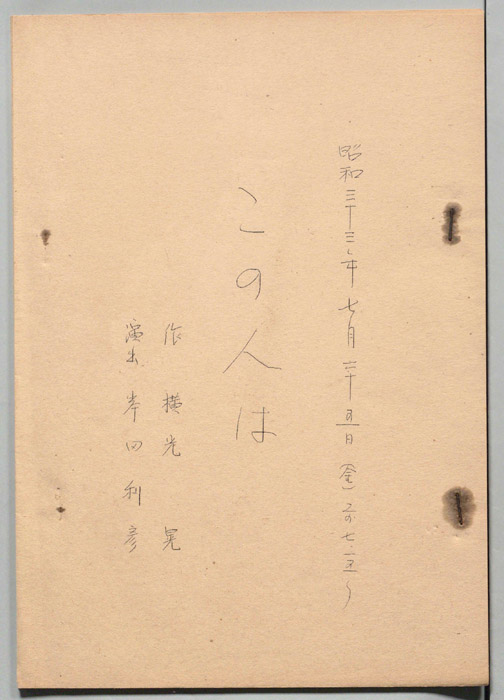 昭和三十三年七月二十五日(金)后七・一五〜
この人は
作 横光 晃
演出 岸田利彦